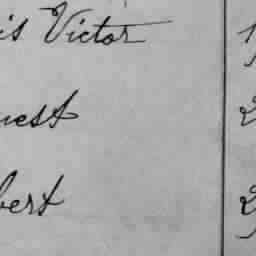 is Victor
nest
bert